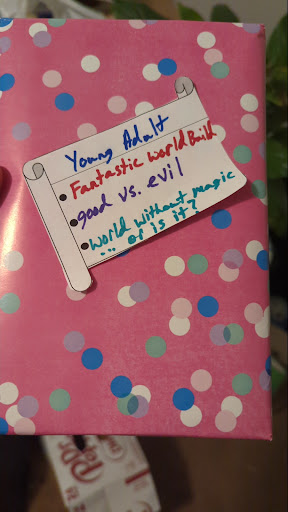 Young Adult
Fantastic world Build
good vs. evil
world without magic
... or is it?